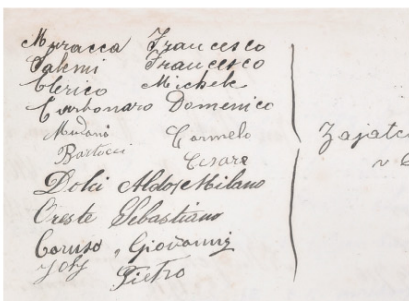 Muracca Francesco
Salemi Francesco
Clerico Michele
Carbonaro Domenico
Carmelo
Bartucci Cesare
Dolci Aldo, Milano
Oreste Sebastiano
Caruso, Giovanni
Pietro